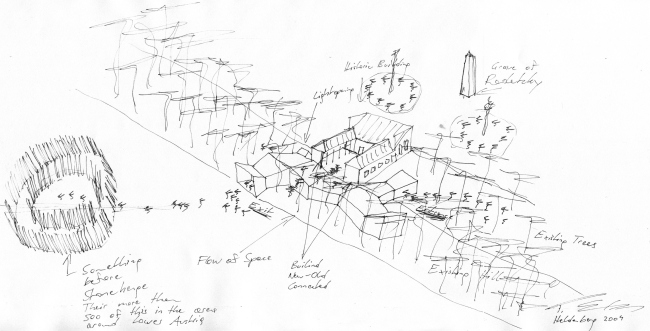 Historic Building
Grave of
Radetzky
Lightopening
Exit
Flow of Space
Build
New-Old
Connected
Existing Trees
Existing
Something
before
Stonehenge
Their more then
500 of this in the areas
around Lower Austria
Heldenberg 2004